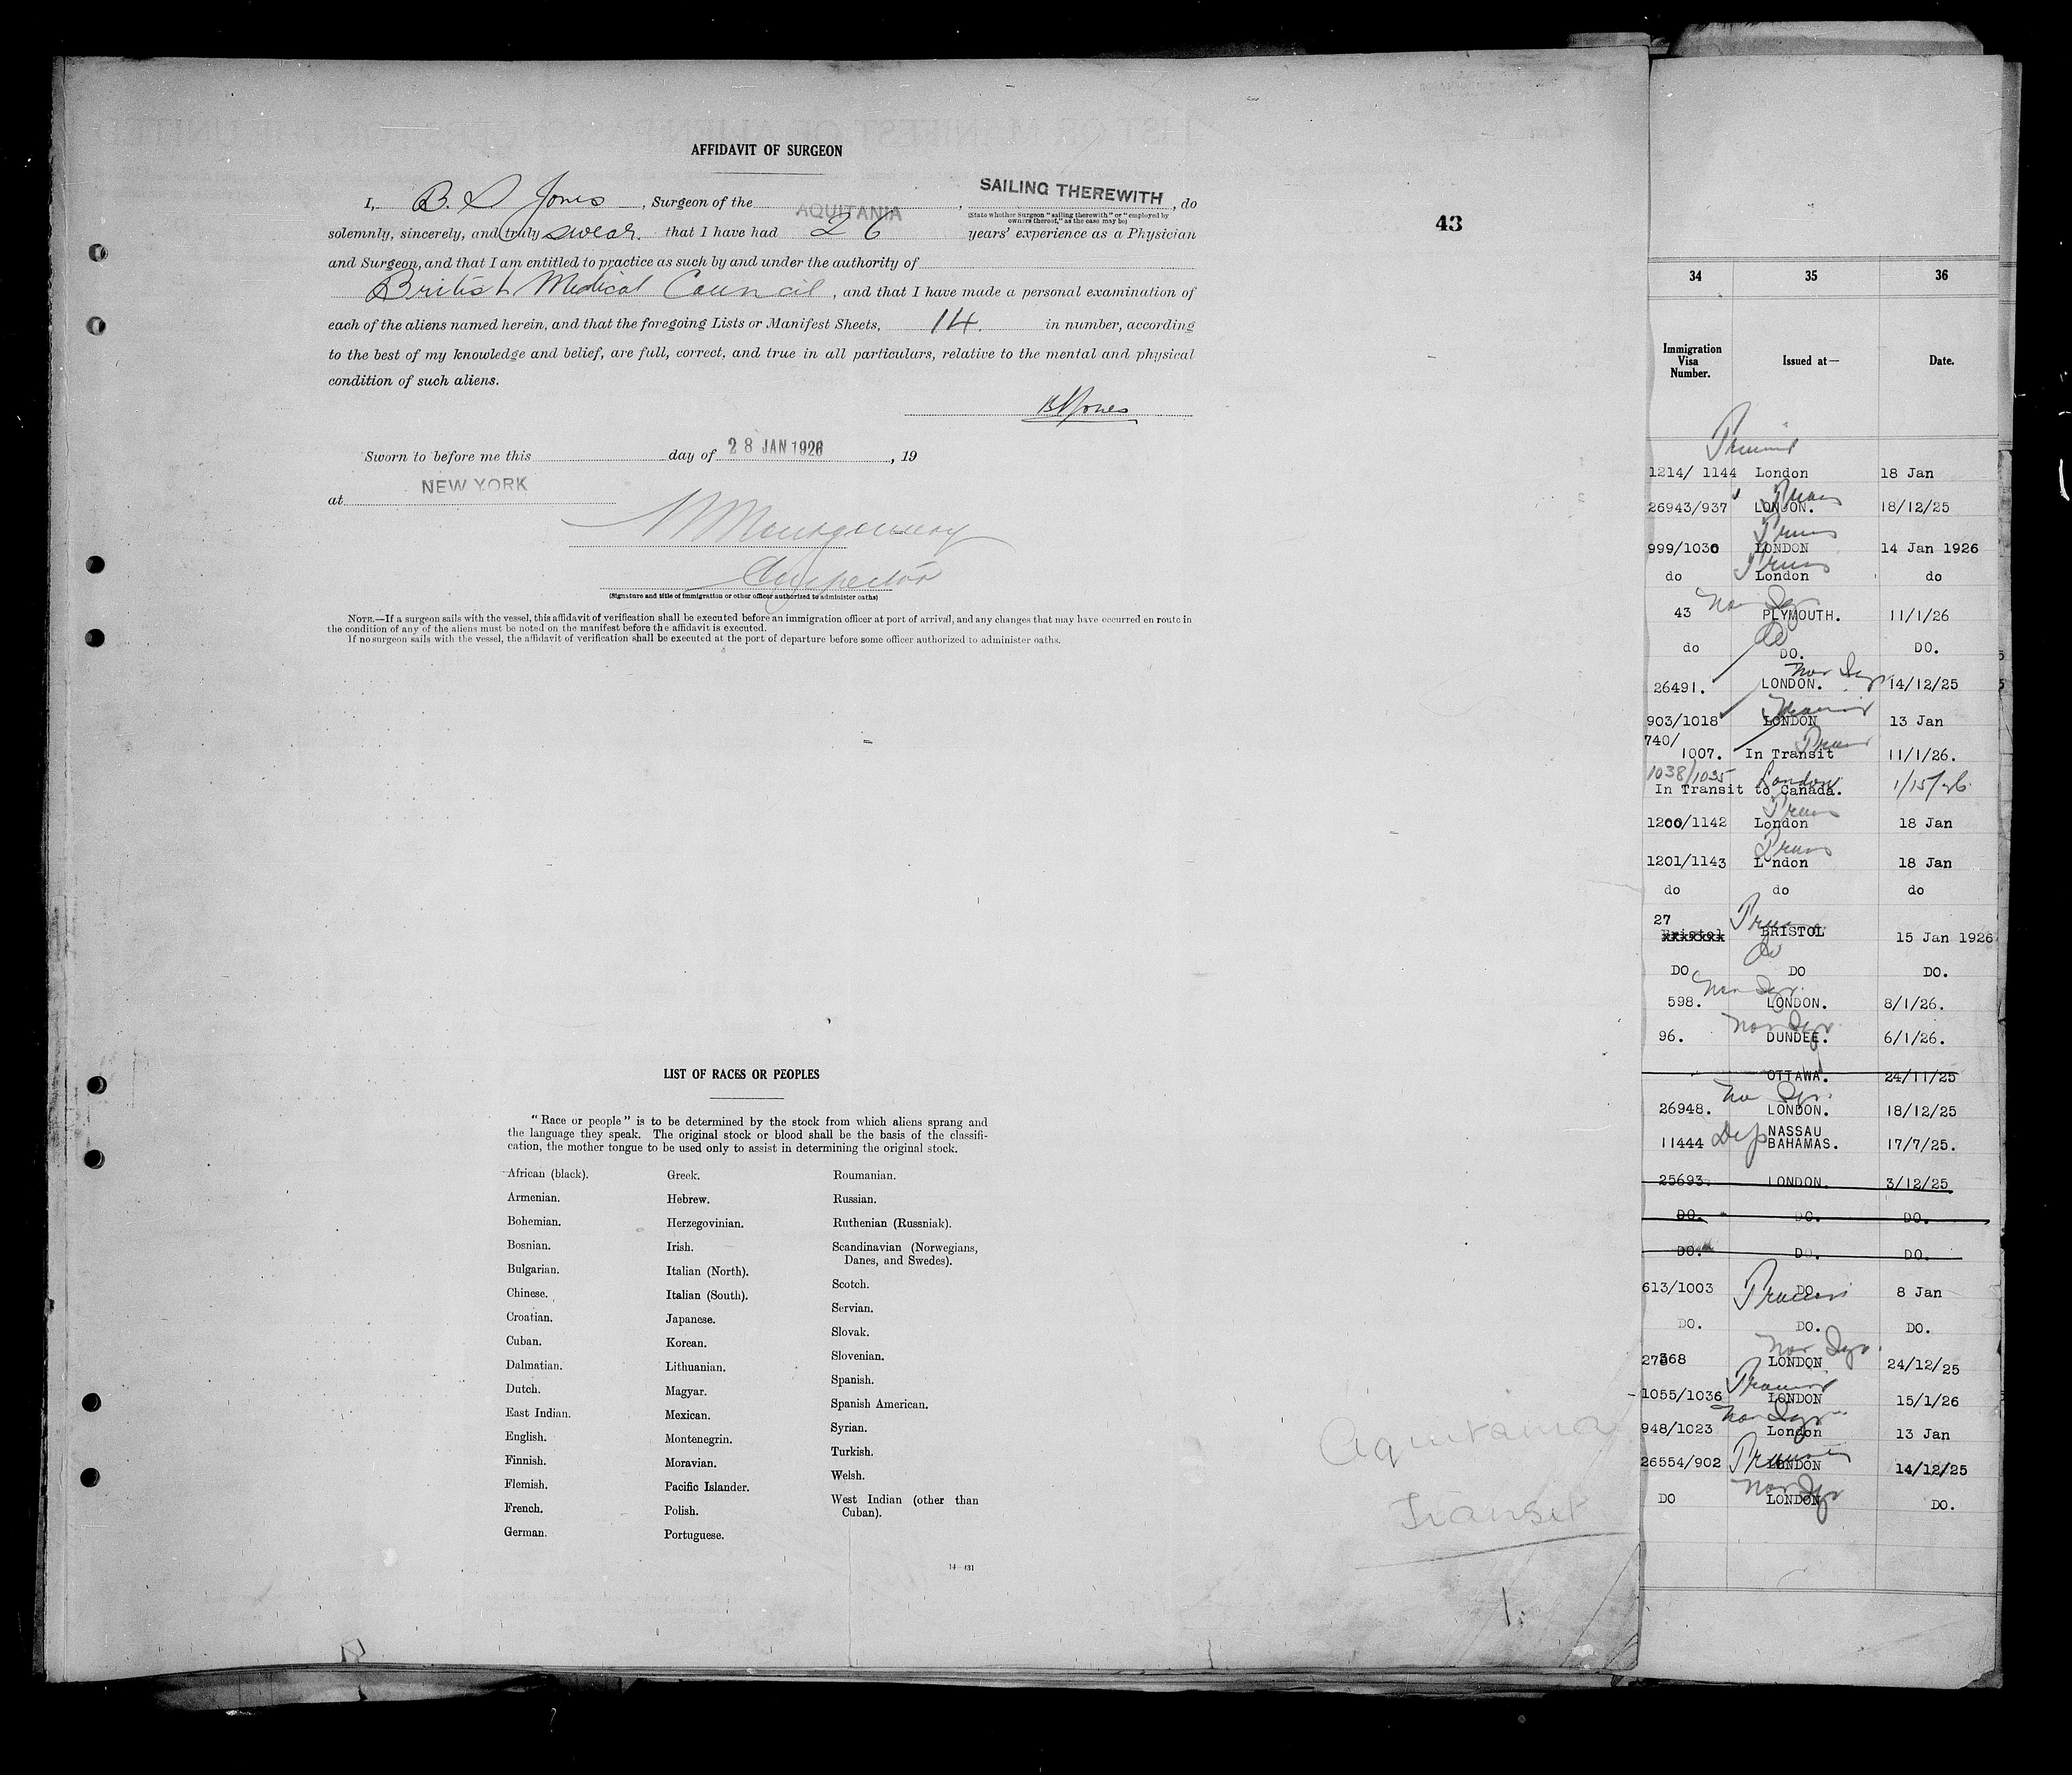 AFFIDAVIT OF SURGEON
I, B. S Jones, Surgeon of the AQUITANIA, SAILING THEREWITH, do
(State whether Surgeon "sailing therewith" or "employed by owners thereof," as the case may be)
solemnly, sincerely, and truly swear. that I have had 26 years' experience as a Physician
and Surgeon, and that I am entitled to practice as such by and under the authority of
British Medical Council, and that I have made a personal examination of
each of the aliens named herein, and that the foregoing Lists or Manifest Sheets, 14. in number, according
to the best of my knowledge and belief, are full, correct, and true in all particulars, relative to the mental and physical
condition of such aliens.
BSJones
Sworn to before me this day of 28 JAN 1926, 19
at NEW YORK
Montgomery
Inspector
(Signature and title of immigration or other officer authorized to administer oaths)
NOTE.—If a surgeon sails with the vessel, this affidavit of verification shall be executed before an immigration officer at port of arrival, and any changes that may have occurred en route in
the condition of any of the aliens must be noted on the manifest before the affidavit is executed.
If no surgeon sails with the vessel, the affidavit of verification shall be executed at the port of departure before some officer authorized to administer oaths.
43
LIST OF RACES OR PEOPLES
"Race or people" is to be determined by the stock from which aliens sprang and
the language they speak. The original stock or blood shall be the basis of the classifi-
cation, the mother tongue to be used only to assist in determining the original stock.
African (black).
Armenian.
Bohemian.
Bosnian.
Bulgarian.
Chinese.
Croatian.
Cuban.
Dalmatian.
Dutch.
East Indian.
English.
Finnish.
Flemish.
French.
German.
Greek.
Hebrew.
Herzegovinian.
Irish.
Italian (North).
Italian (South).
Japanese.
Korean.
Lithuanian.
Magyar.
Mexican.
Montenegrin.
Moravian.
Pacific Islander.
Polish.
Portuguese.
Roumanian.
Russian.
Ruthenian (Russniak).
Scandinavian (Norwegians,
Danes, and Swedes).
Scotch.
Servian.
Slovak.
Slovenian.
Spanish.
Spanish American.
Syrian.
Turkish.
Welsh.
West Indian (other than
Cuban).
14—431
Aquitania
Transit
1.
34 35 36
Immigration Visa Number. Issued at— Date.
Transit
1214/1144 London 18 Jan
Trans
26943/937 LONDON. 18/12/25
Trans
999/1030 LONDON 14 Jan 1926
Trans
do London do
Non Imm
43 PLYMOUTH. 11/1/26
do
do DO. DO.
26491. LONDON. 14/12/25
Transit
903/1018 LONDON 13 Jan
740/
1007. In Transit 11/1/26.
1038/1035 London 1/15/26
In Transit to Canada.
Trans
1200/1142 London 18 Jan
Trans
1201/1143 London 18 Jan
do do do
27
Bristol BRISTOL 15 Jan 1926
do
DO DO DO.
598. LONDON. 8/1/26.
96. DUNDEE. 6/1/26.
OTTAWA. 24/11/25
26948. LONDON. 18/12/25
NASSAU
11444 BAHAMAS. 17/7/25.
25693. LONDON. 3/12/25
DO. DO. DO.
DO. DO. DO.
613/1003 DO. Transit 8 Jan
DO. DO. DO.
LONDON 24/12/25
Transit
1055/1036 LONDON 15/1/26
948/1023 London 13 Jan
26554/902 LONDON Transit 14/12/25
DO LONDON DO.